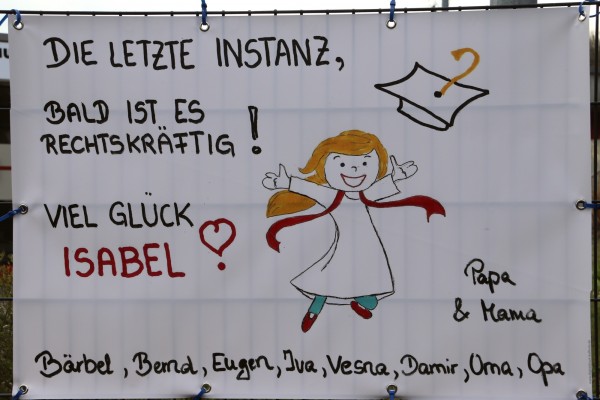 DIE LETZTE INSTANZ,
BALD IST ES
RECHTSKRÄFTIG !
VIEL GLÜCK
ISABEL !
Papa
& Mama
Bärbel, Bernd, Eugen, Iva, Vesna, Damir, Oma, Opa